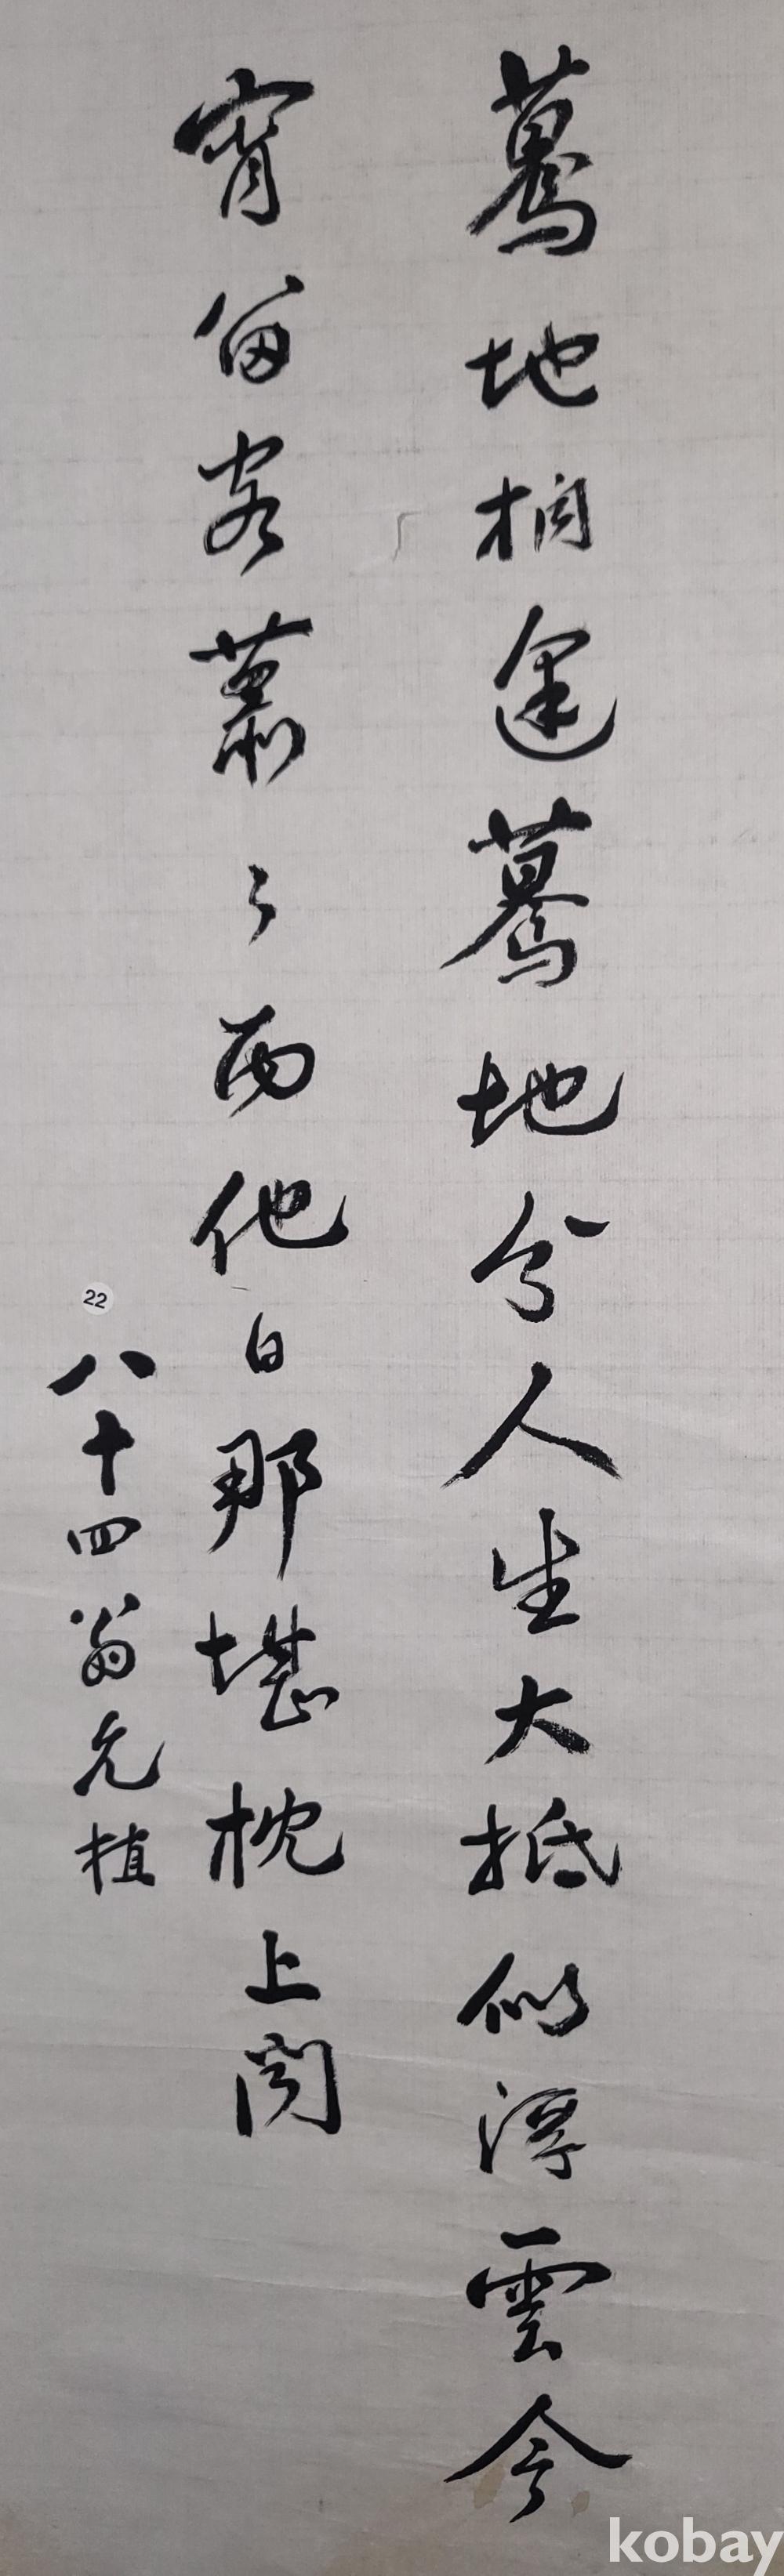 驀地相逢驀地分人生大抵似浮雲今
宵留客蕭々雨他日那堪枕上聞
22
八十四翁允植
kobay